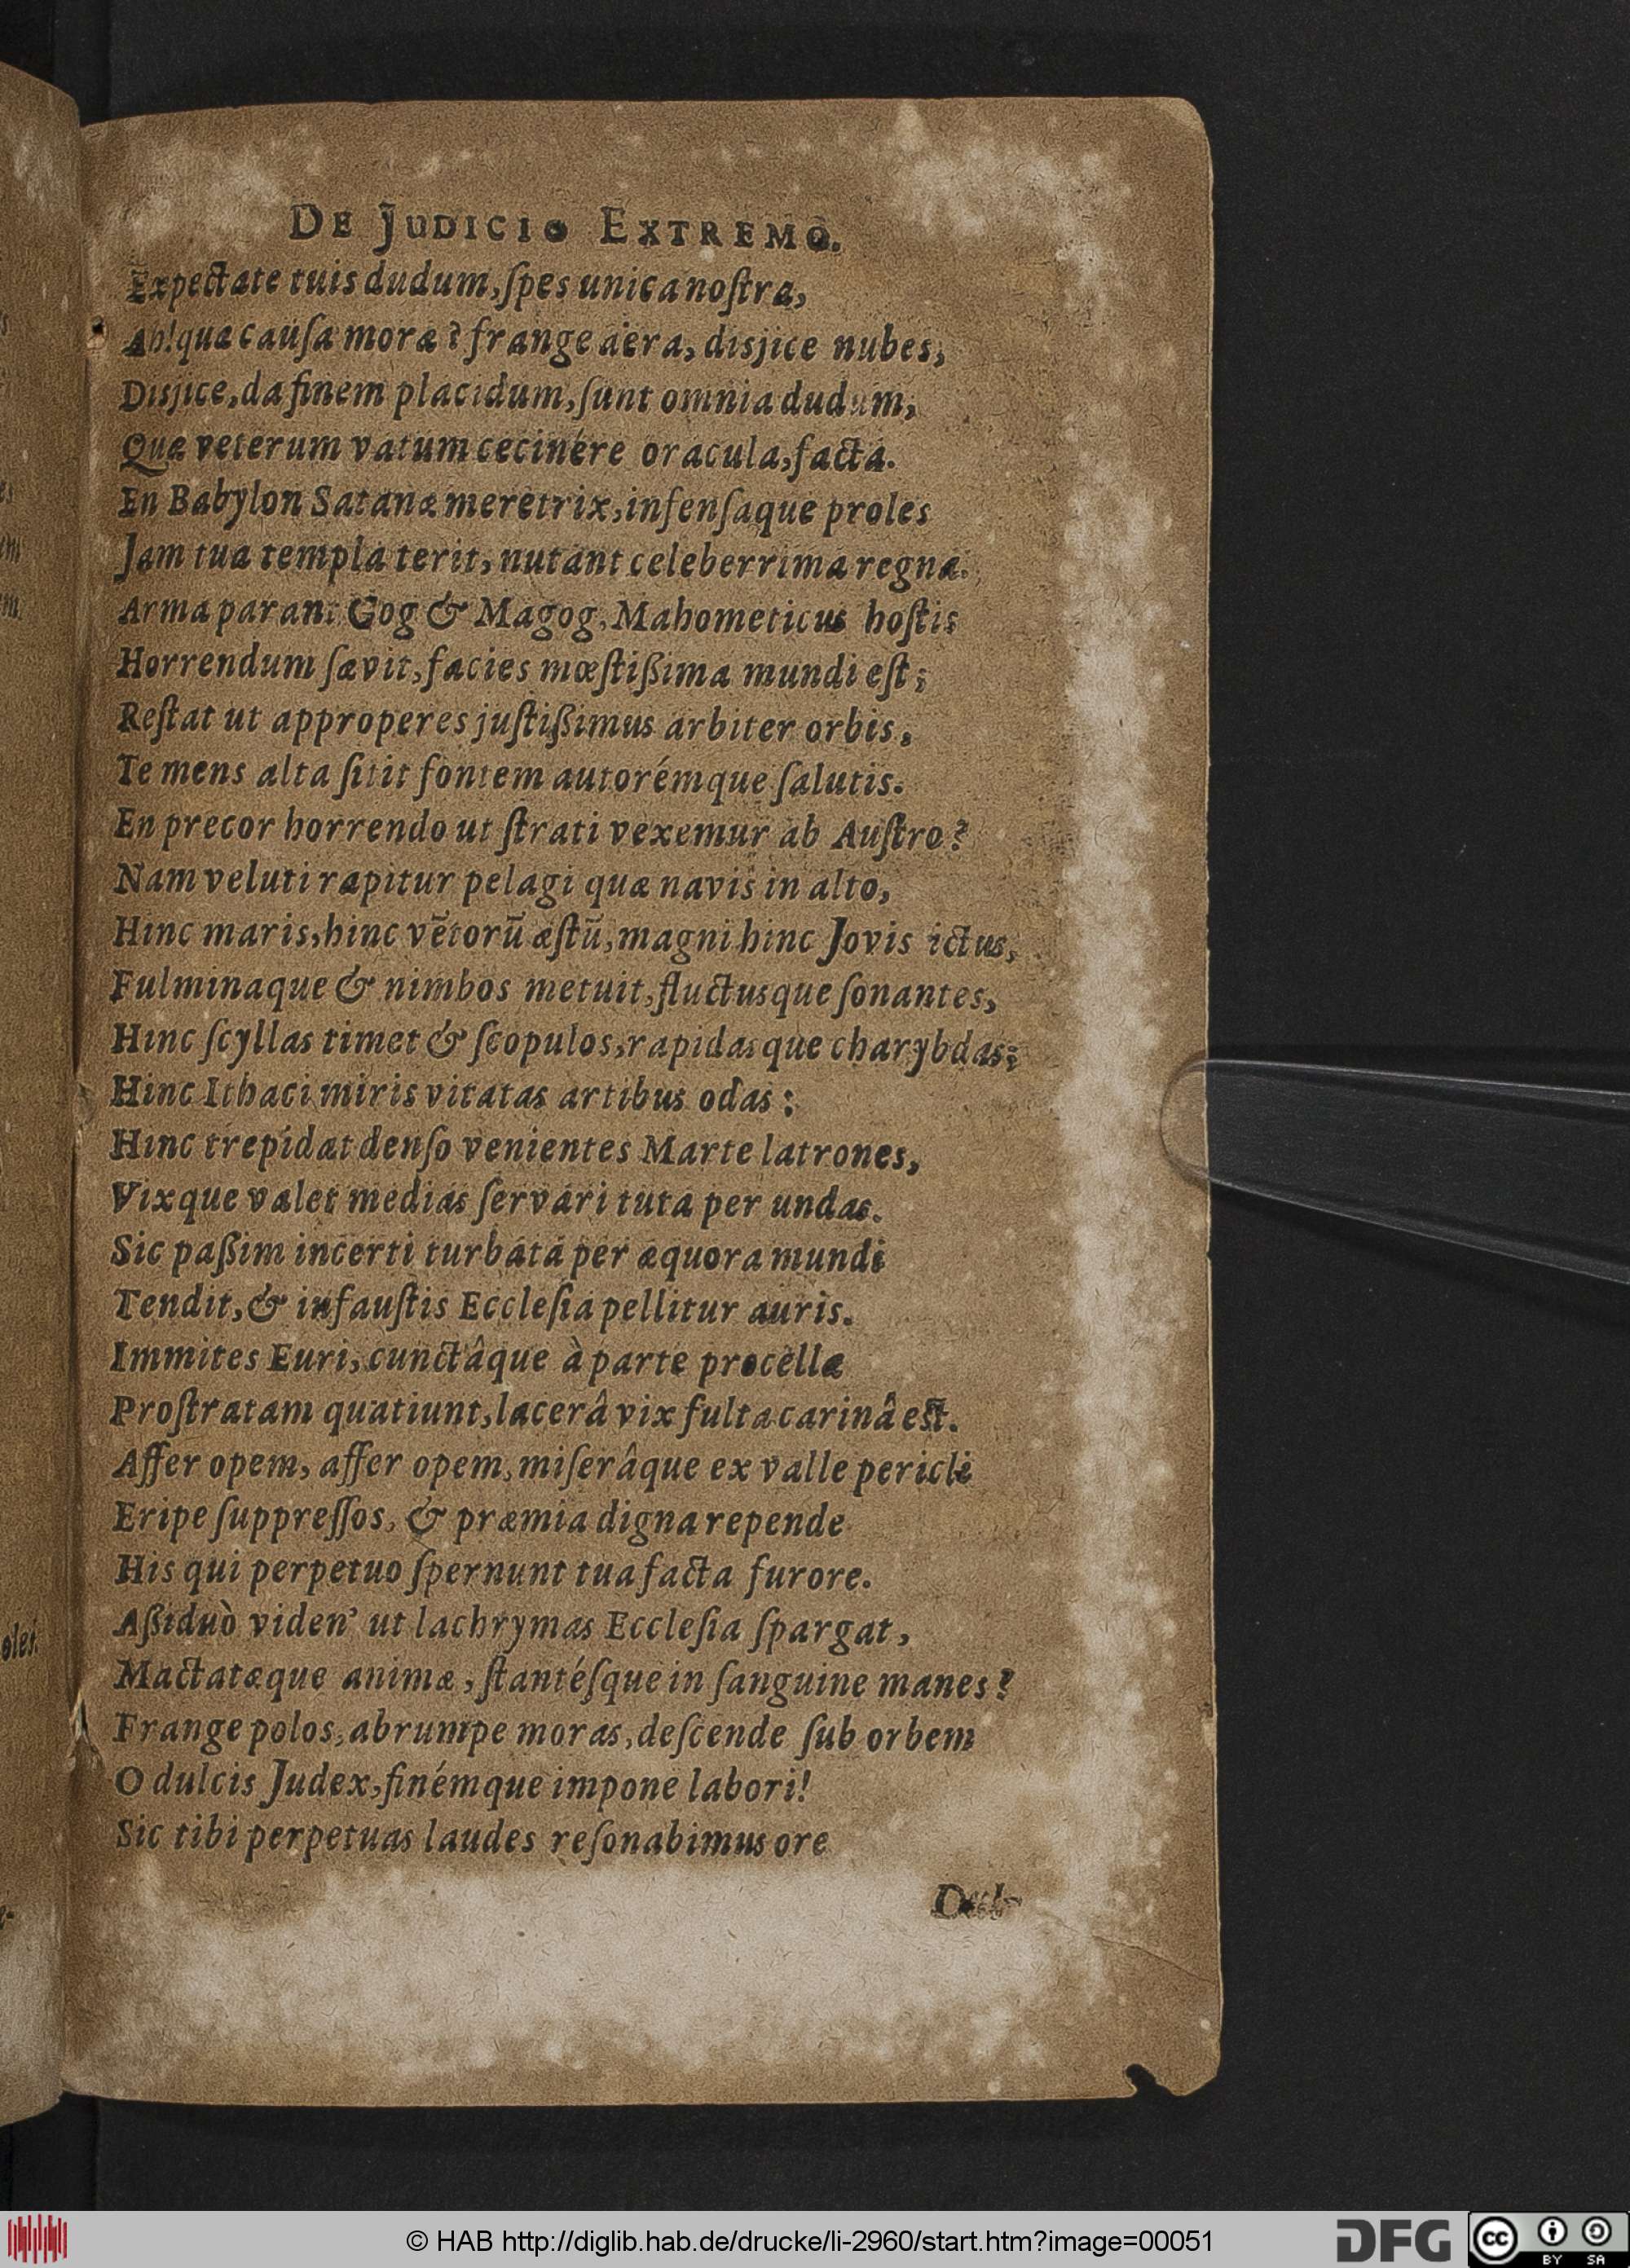 DE JUDICIO EXTREMO.
Expectate tuis dudum, ſpes unica noſtra,
Ah! qua cauſa moræ? frange aëra, disjice nubes,
Disjice, da finem placidum, ſunt omnia dudum,
Quæ veterum vatum cecinére oracula, facta.
En Babylon Satanæ meretrix, infenſaque proles
Jam tua templa terit, nutant celeberrima regna.
Arma parant Gog & Magog, Mahometicus hoſtis
Horrendum ſævit, facies mœſtißima mundi eſt;
Reſtat ut approperes juſtißimus arbiter orbis,
Te mens alta ſitit fontem autorémque ſalutis.
En precor horrendo ut ſtrati vexemur ab Auſtro?
Nam veluti rapitur pelagi quæ navis in alto,
Hinc maris, hinc vẽtorũ æſtũ, magni hinc Jovis ictus,
Fulminaque & nimbos metuit, fluctusque ſonantes,
Hinc ſcyllas timet & ſcopulos, rapidasque charybdas;
Hinc Ithaci miris vitatas artibus odas:
Hinc trepidat denſo venientes Marte latrones,
Vixque valet medias ſervari tuta per undas.
Sic paßim incerti turbata per æquora mundi
Tendit, & infauſtis Eccleſia pellitur auris.
Immites Euri, cunctâque à parte procellæ
Proſtratam quatiunt, lacerâ vix fulta carinâ eſt.
Affer opem, affer opem, miſerâque ex valle pericli
Eripe ſuppreſſos, & præmia digna repende
His qui perpetuo ſpernunt tua facta furore.
Aßiduò viden' ut lachrymas Eccleſia ſpargat,
Mactatæque animæ, ſtantéſque in ſanguine manes?
Frange polos, abrumpe moras, deſcende ſub orbem
O dulcis Judex, finémque impone labori!
Sic tibi perpetuas laudes reſonabimus ore
© HAB http://diglib.hab.de/drucke/li-2960/start.htm?image=00051
DFG
cc BY SA